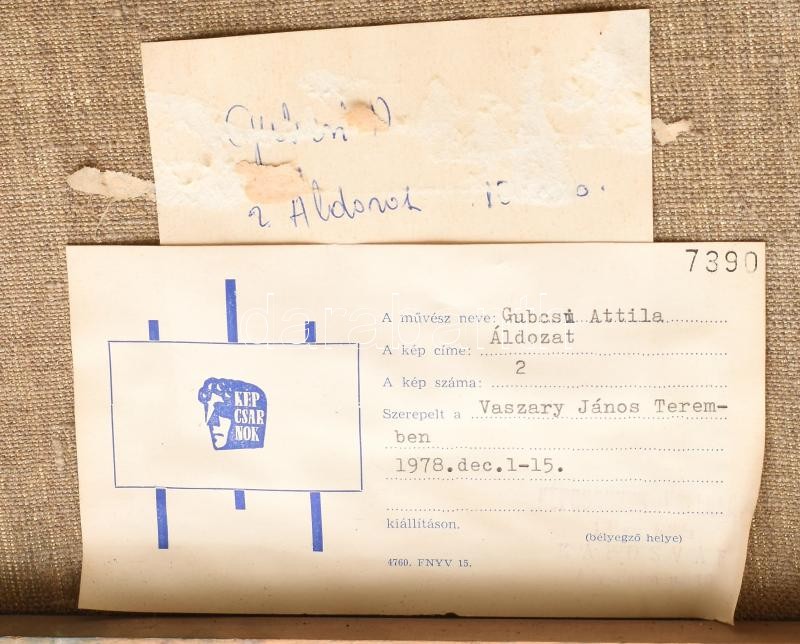 2. Áldozat
7390
A művész neve: Gubcsi Attila
A kép címe: Áldozat
A kép száma: 2
Szerepelt a Vaszary János Terem-
ben
1978.dec.1-15.
kiállításon.
(bélyegző helye)
4760. FNYV 15.
KÉP
CSAR
NOK